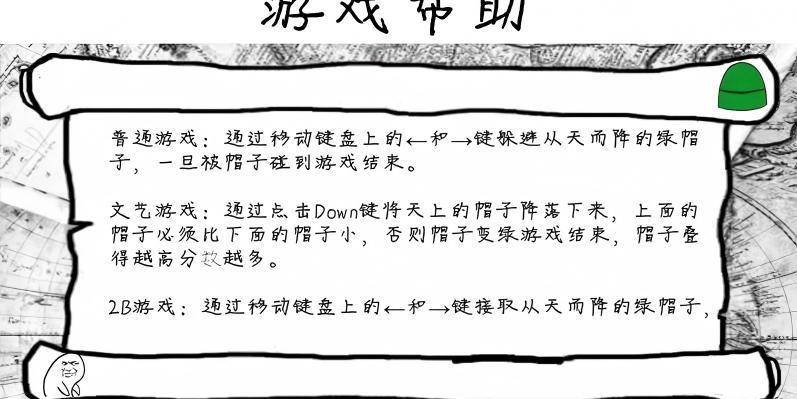 游戏帮助
普通游戏：通过移动键盘上的←和→键躲避从天而降的绿帽
子，一旦被帽子碰到游戏结束。
文艺游戏：通过点击Down键将天上的帽子降落下来，上面的
帽子必须比下面的帽子小，否则帽子变绿游戏结束，帽子叠
得越高分数越多。
2B游戏：通过移动键盘上的←和→键接取从天而降的绿帽子，